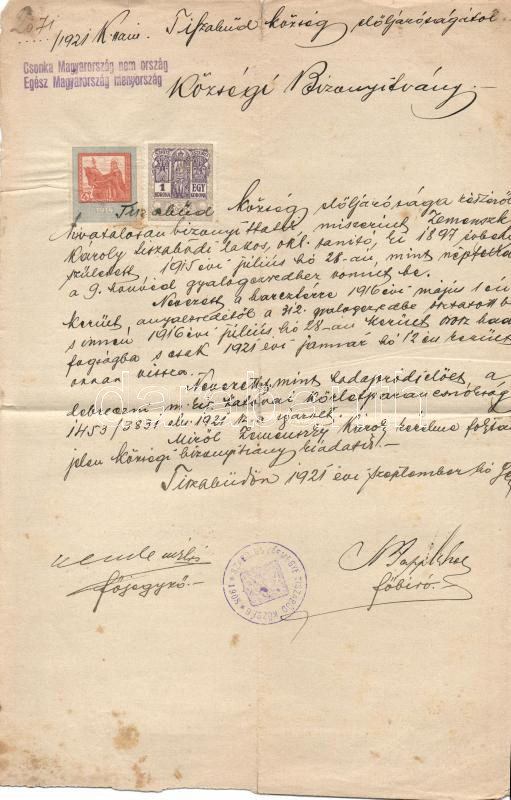 2071
/1921 Kn. sz. Tiszabűd község elöljáróságától
Csonka Magyarország nem ország
Egész Magyarország menyország
Községi Bizonyítvány.-
1 EGY
KORONA KORONA
Tiszabűd község elöljárósága részéről
hivatalosan bizonyíttatik miszerint Zemenszky
Károly tiszabűdi lakos, okl. tanító, ki 1897 évben
született, 1915 évi július hó 28-án, mint népfelkelő
a 9. honvéd gyalogezredhez vonult be.
Nevezett a harcztérre 1916 év május 1 én
került, a 312. gyalogezredbe osztatott be
s innen 1916 évi július hó 28-án került orosz had
fogságba s csak 1921 évi január hó 12 én került
onnan vissza.
Nevezett, mint hadapródjelölt a
debreczeni m. kir. katonai körletparancsnokság
1453/3831 eln 1921 sz. igazolt.
Miről Zemenszky Károly kérelme folytán
jelen községi bizonyítvány kiadatik.-
Tiszabűdön 1921 évi szeptember hó
főjegyző.-
főbíró.-
darabanth